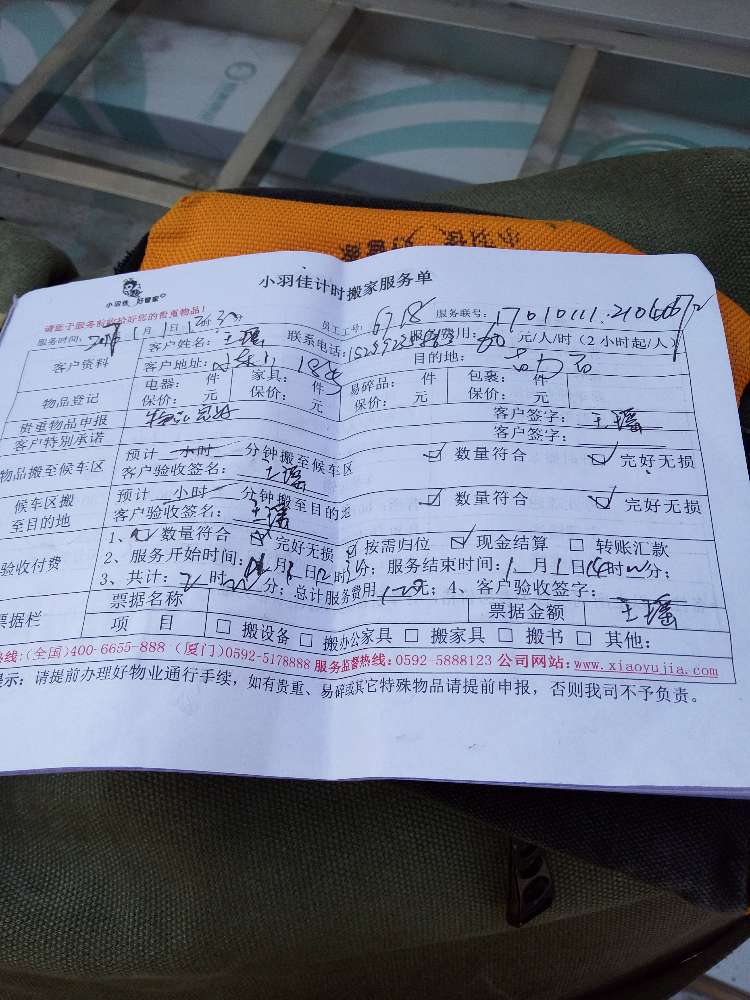 小羽佳 好管家
小羽佳计时搬家服务单
请您于服务前收拾好您的贵重物品!
员工工号: 6718 服务联号: 17010111.2106
服务时间: 2017年1月1日12时30
客户资料 客户姓名: 王瑶 联系电话: 服务费用: 60 元/人/时(2小时起/人)
客户地址: 目的地:
物品登记 电器: 件 家具: 件 易碎品: 件 包裹: 件
保价: 元 保价: 元 保价: 元 保价: 元
贵重物品申报 客户签字: 王瑶
客户特别承诺 客户签字:
物品搬至候车区 预计 小时 分钟搬至候车区 ☑ 数量符合 ☑ 完好无损
客户验收签名: 王瑶
候车区搬至目的地 预计 小时 分钟搬至目的地 ☑ 数量符合 ☑ 完好无损
客户验收签名: 王瑶
验收付费 1、☑ 数量符合 ☑ 完好无损 ☑ 按需归位 ☑ 现金结算 □ 转账汇款
2、服务开始时间: 月1日12时 分; 服务结束时间: 1月1日14时 分;
3、共计: 2时 分; 总计服务费用 120元; 4、客户验收签字: 王瑶
票据栏 票据名称 票据金额
项 目 □ 搬设备 □ 搬办公家具 □ 搬家具 □ 搬书 □ 其他:
热线:(全国)400-6655-888 (厦门)0592-5178888 服务监督热线: 0592-5888123 公司网站: www.xiaoyujia.com
提示: 请提前办理好物业通行手续, 如有贵重、易碎或其它特殊物品请提前申报, 否则我司不予负责。